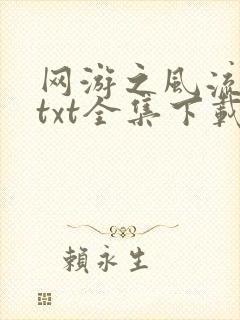 网游之风流
txt全集下载
賴永生